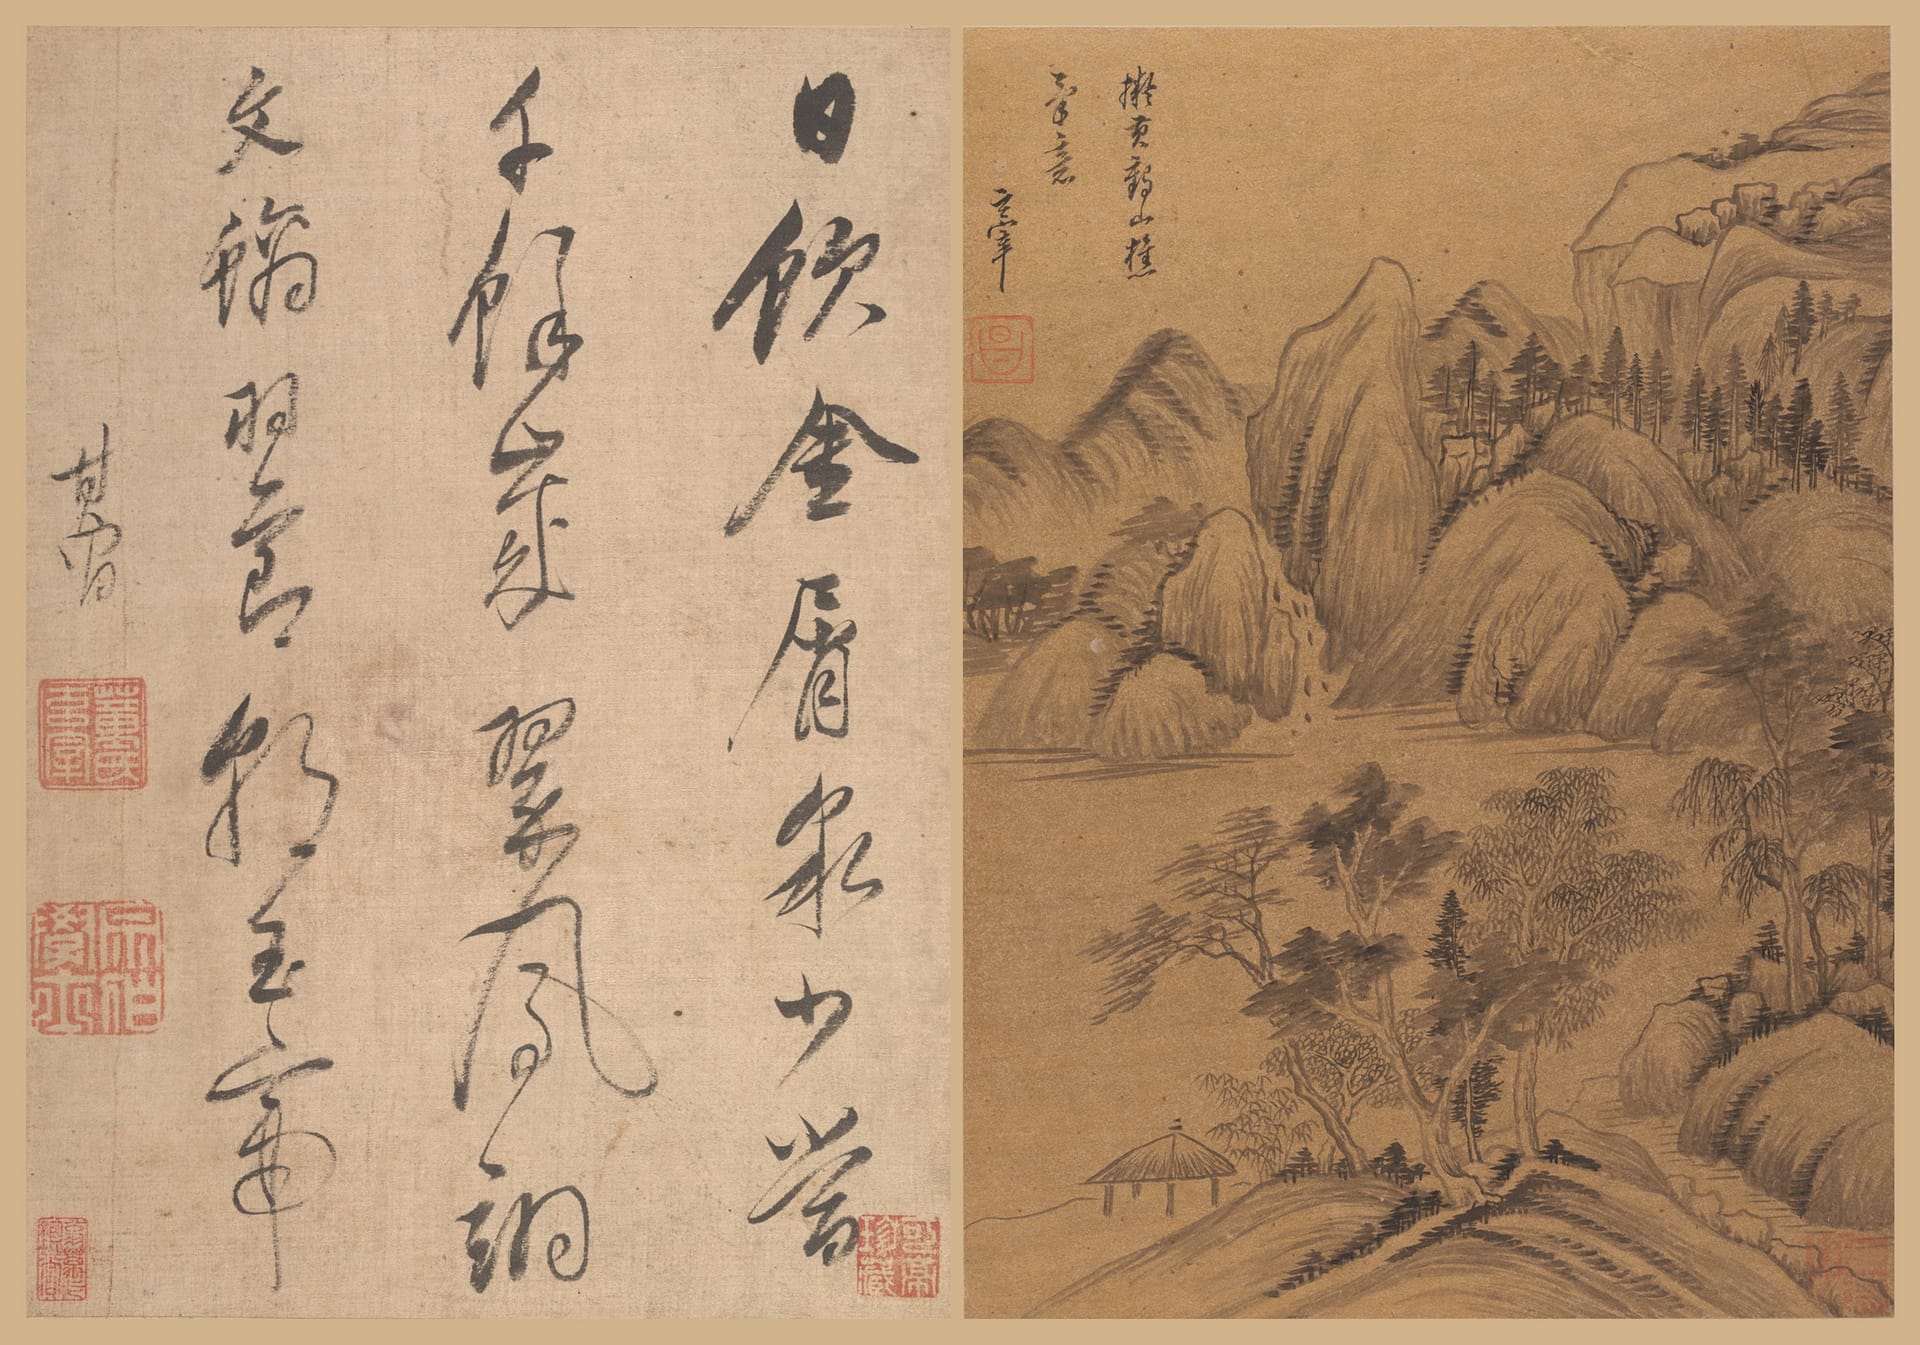 擬黃鶴山樵
筆意
玄宰
昌
日飲金屑泉少當
千餘歲翠鳳翊
文螭羽節朝玉帝
其昌
珍藏